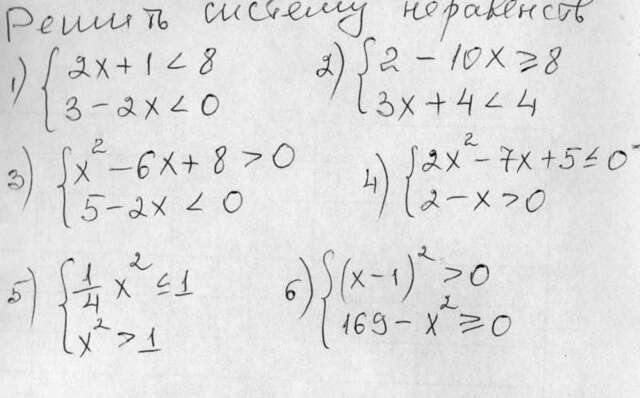 Решить систему неравенств
1) { 2x + 1 < 8
3 - 2x < 0
2) { 2 - 10x ≥ 8
3x + 4 < 4
3) { x² - 6x + 8 > 0
5 - 2x < 0
4) { 2x² - 7x + 5 ≤ 0
2 - x > 0
5) { 1/4 x² ≤ 1
x² > 1
6) { (x - 1)² > 0
169 - x² ≥ 0